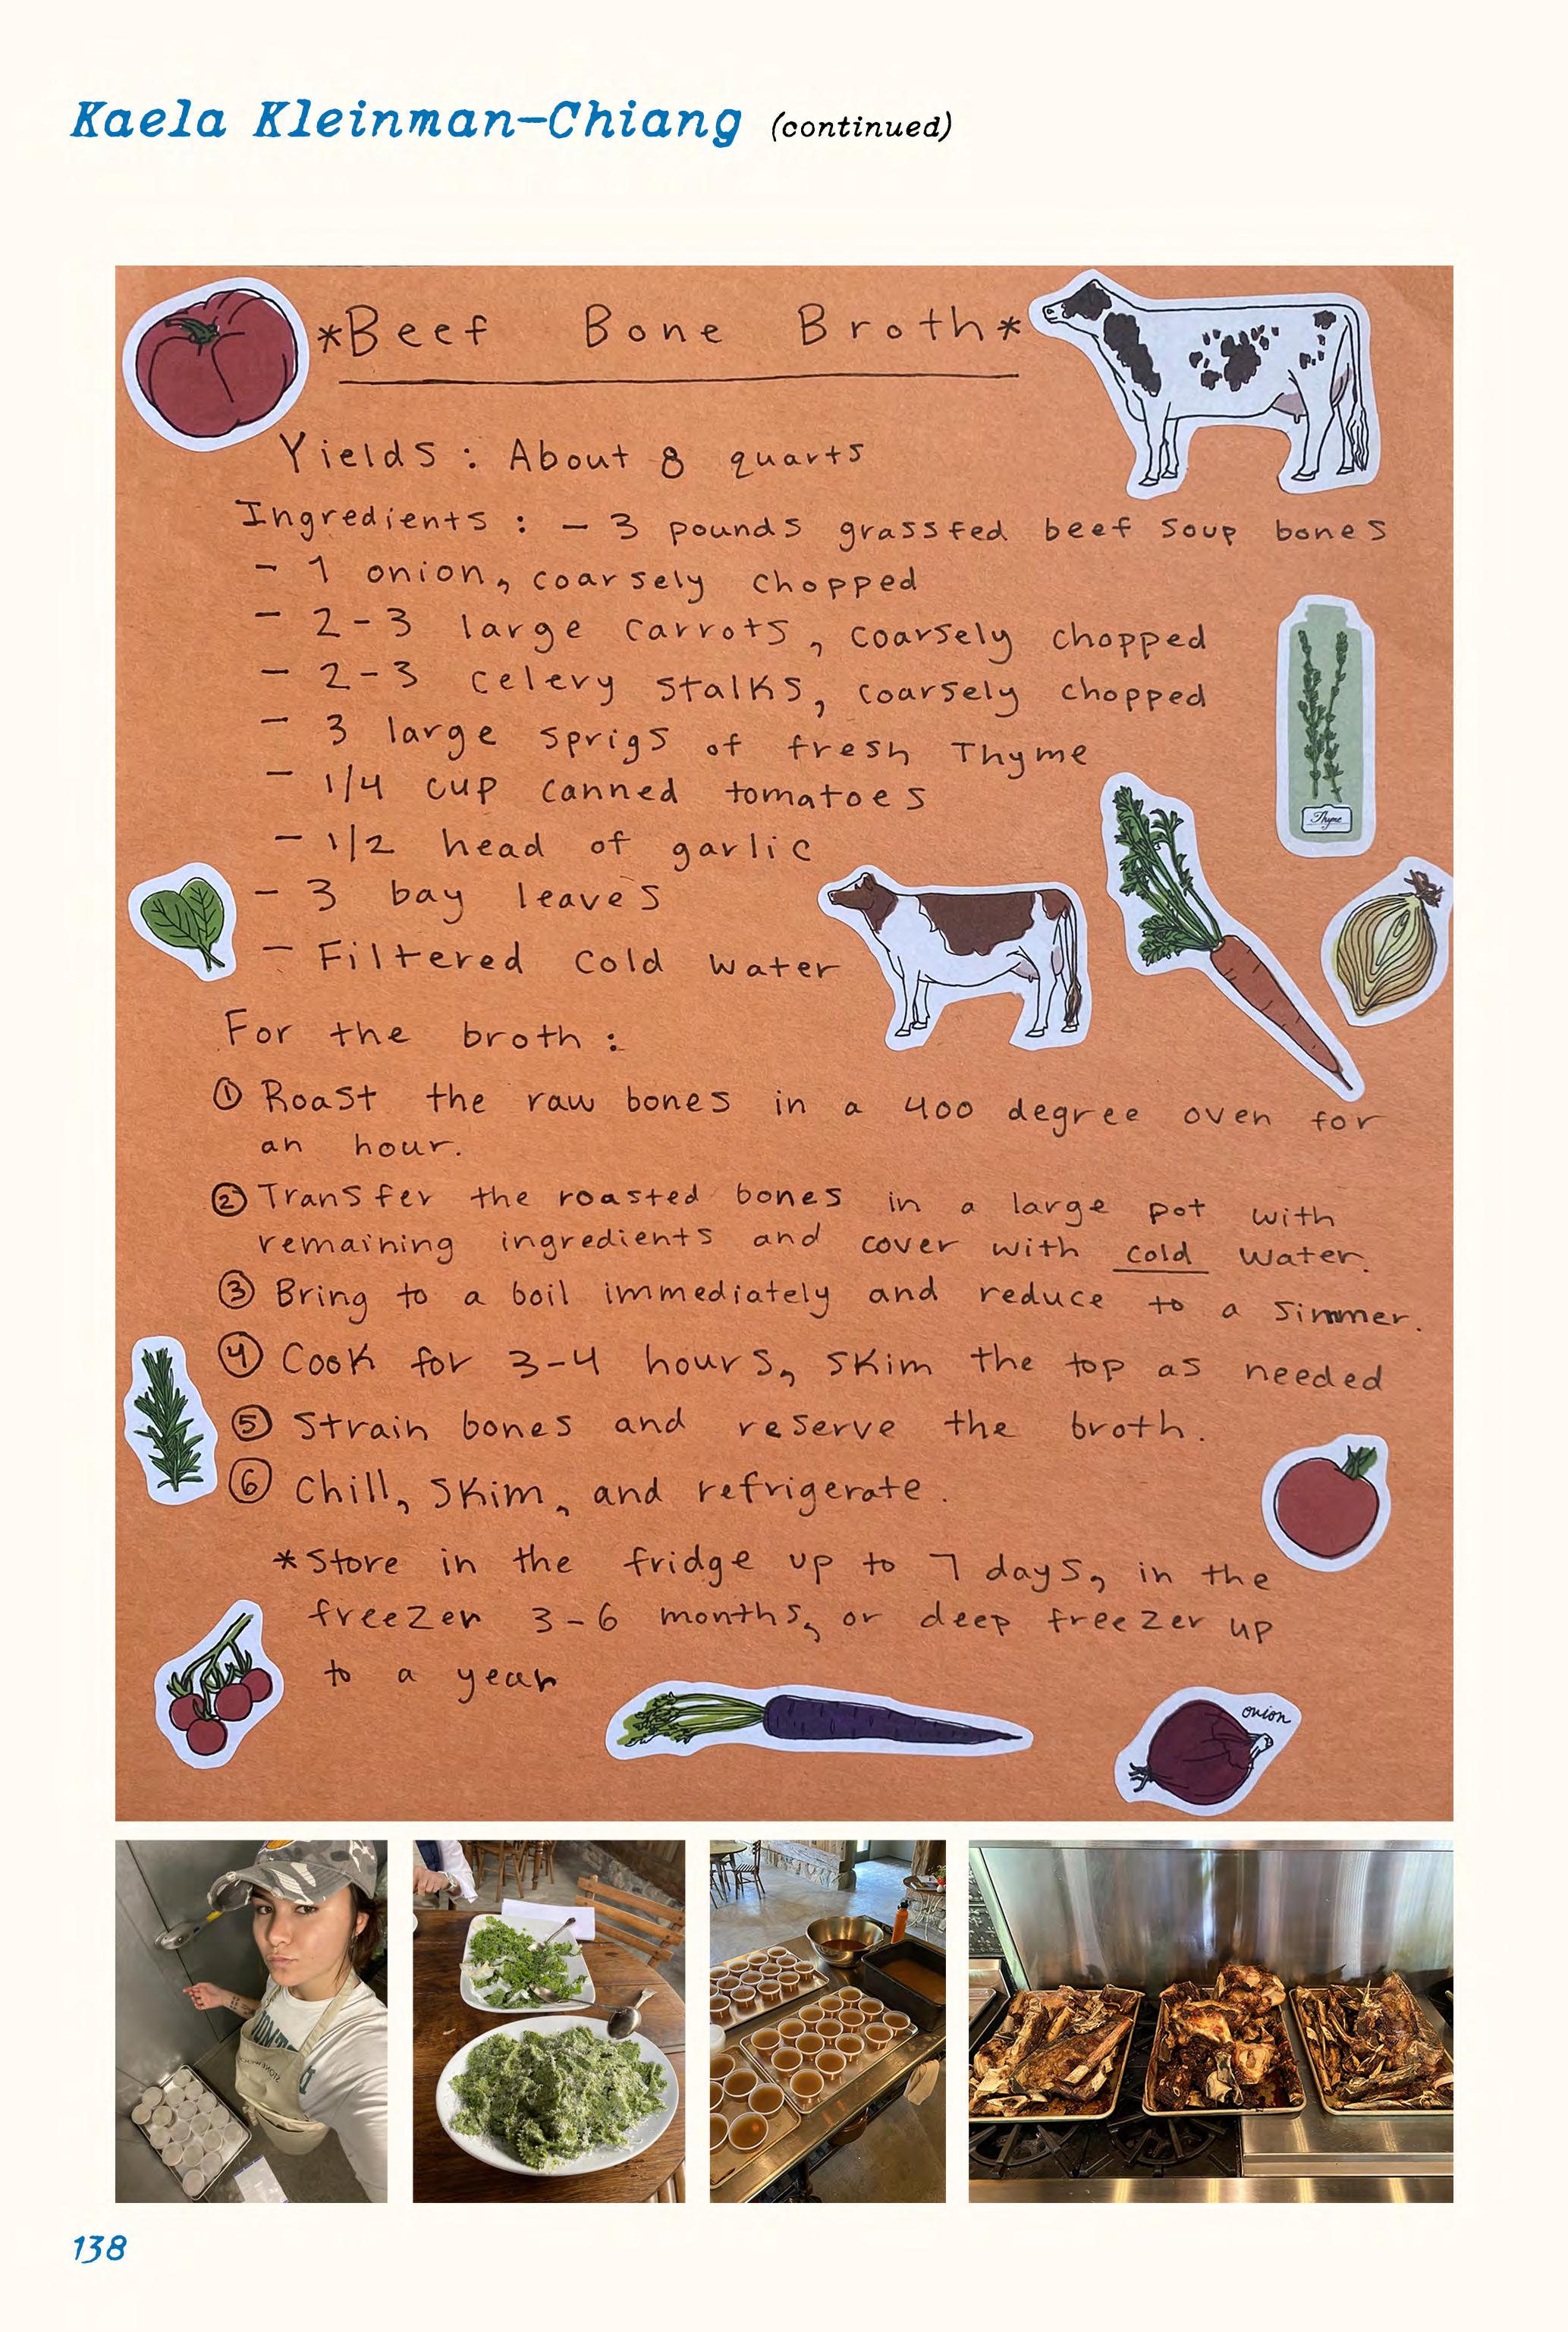 Kaela Kleinman-Chiang (continued)
*Beef Bone Broth*
Yields : About 8 quarts
Ingredients : - 3 pounds grassfed beef soup bones
- 1 onion, coarsely chopped
- 2-3 large carrots, coarsely chopped
- 2-3 celery stalks, coarsely chopped
- 3 large sprigs of fresh Thyme
- 1/4 cup canned tomatoes
- 1/2 head of garlic
- 3 bay leaves
- Filtered cold water
Thyme
For the broth :
① Roast the raw bones in a 400 degree oven for
an hour.
② Transfer the roasted bones in a large pot with
remaining ingredients and cover with cold water.
③ Bring to a boil immediately and reduce to a simmer.
④ Cook for 3-4 hours, skim the top as needed
⑤ Strain bones and reserve the broth.
⑥ Chill, skim, and refrigerate.
*Store in the fridge up to 7 days, in the
freezer 3-6 months, or deep freezer up
to a year
onion
138